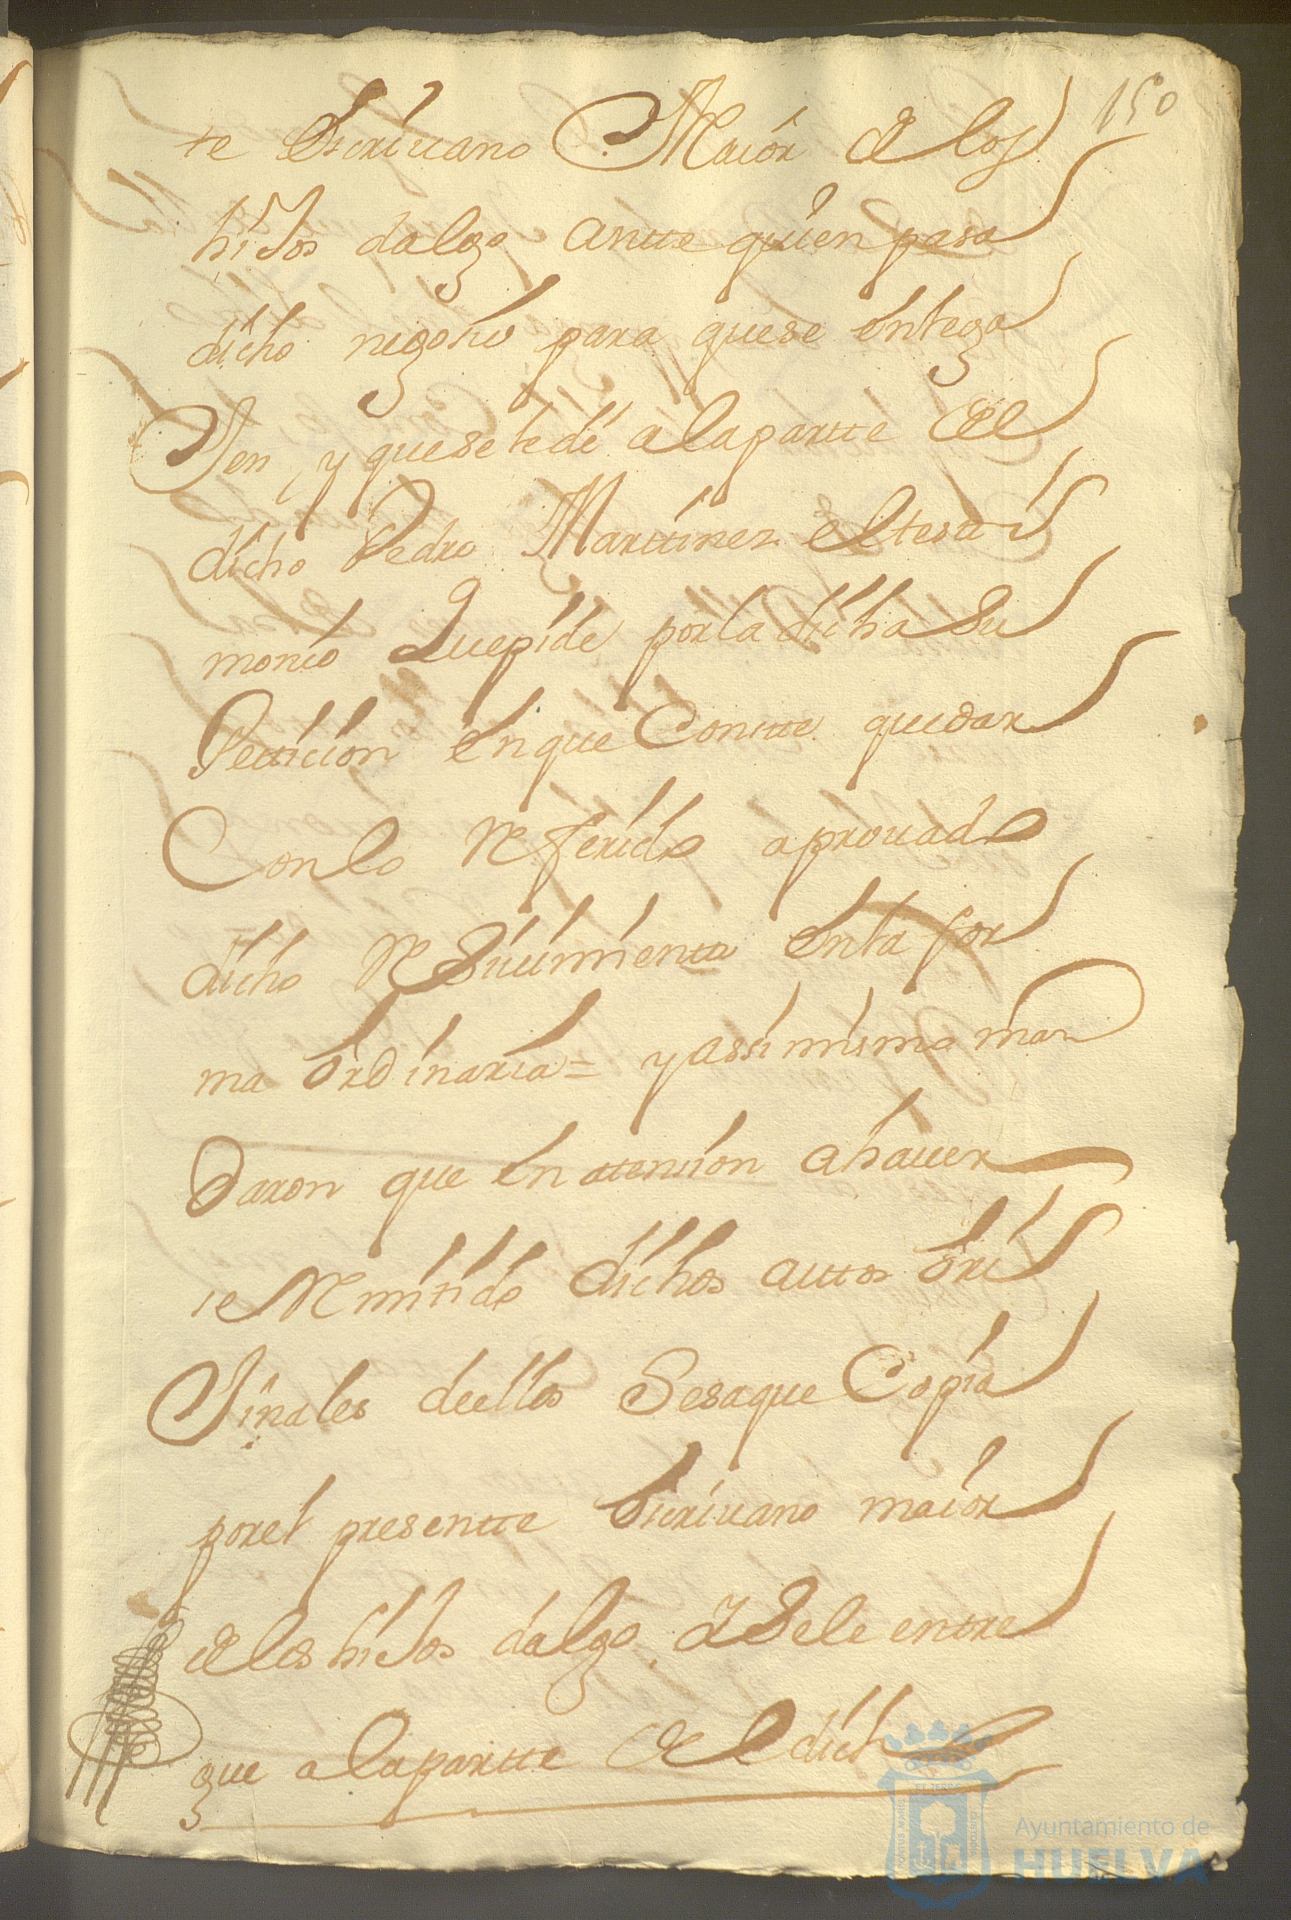 150
te Escriuano Maior de los
hiJos dalgo antte quien pasa
dicho negozio para quese entrega
Jen, y quese le de alapartte del
dicho Pedro Marttinez el testi
monio Quepide porla dicha Su
Petticion enque Constte quedar
Conlo Referido aprouado
dicho Reciuimiento enla for
ma ordinaria = y assi mismo man
Daron que en atencion ahauer
se Remitido dichos auttos ori
Jinales deellos Sesaque Copia
porel presentte Escriuano maior
delos hiJos dalgo y Sele entre
gue alapartte del dicho
Ayuntamiento de
HUELVA